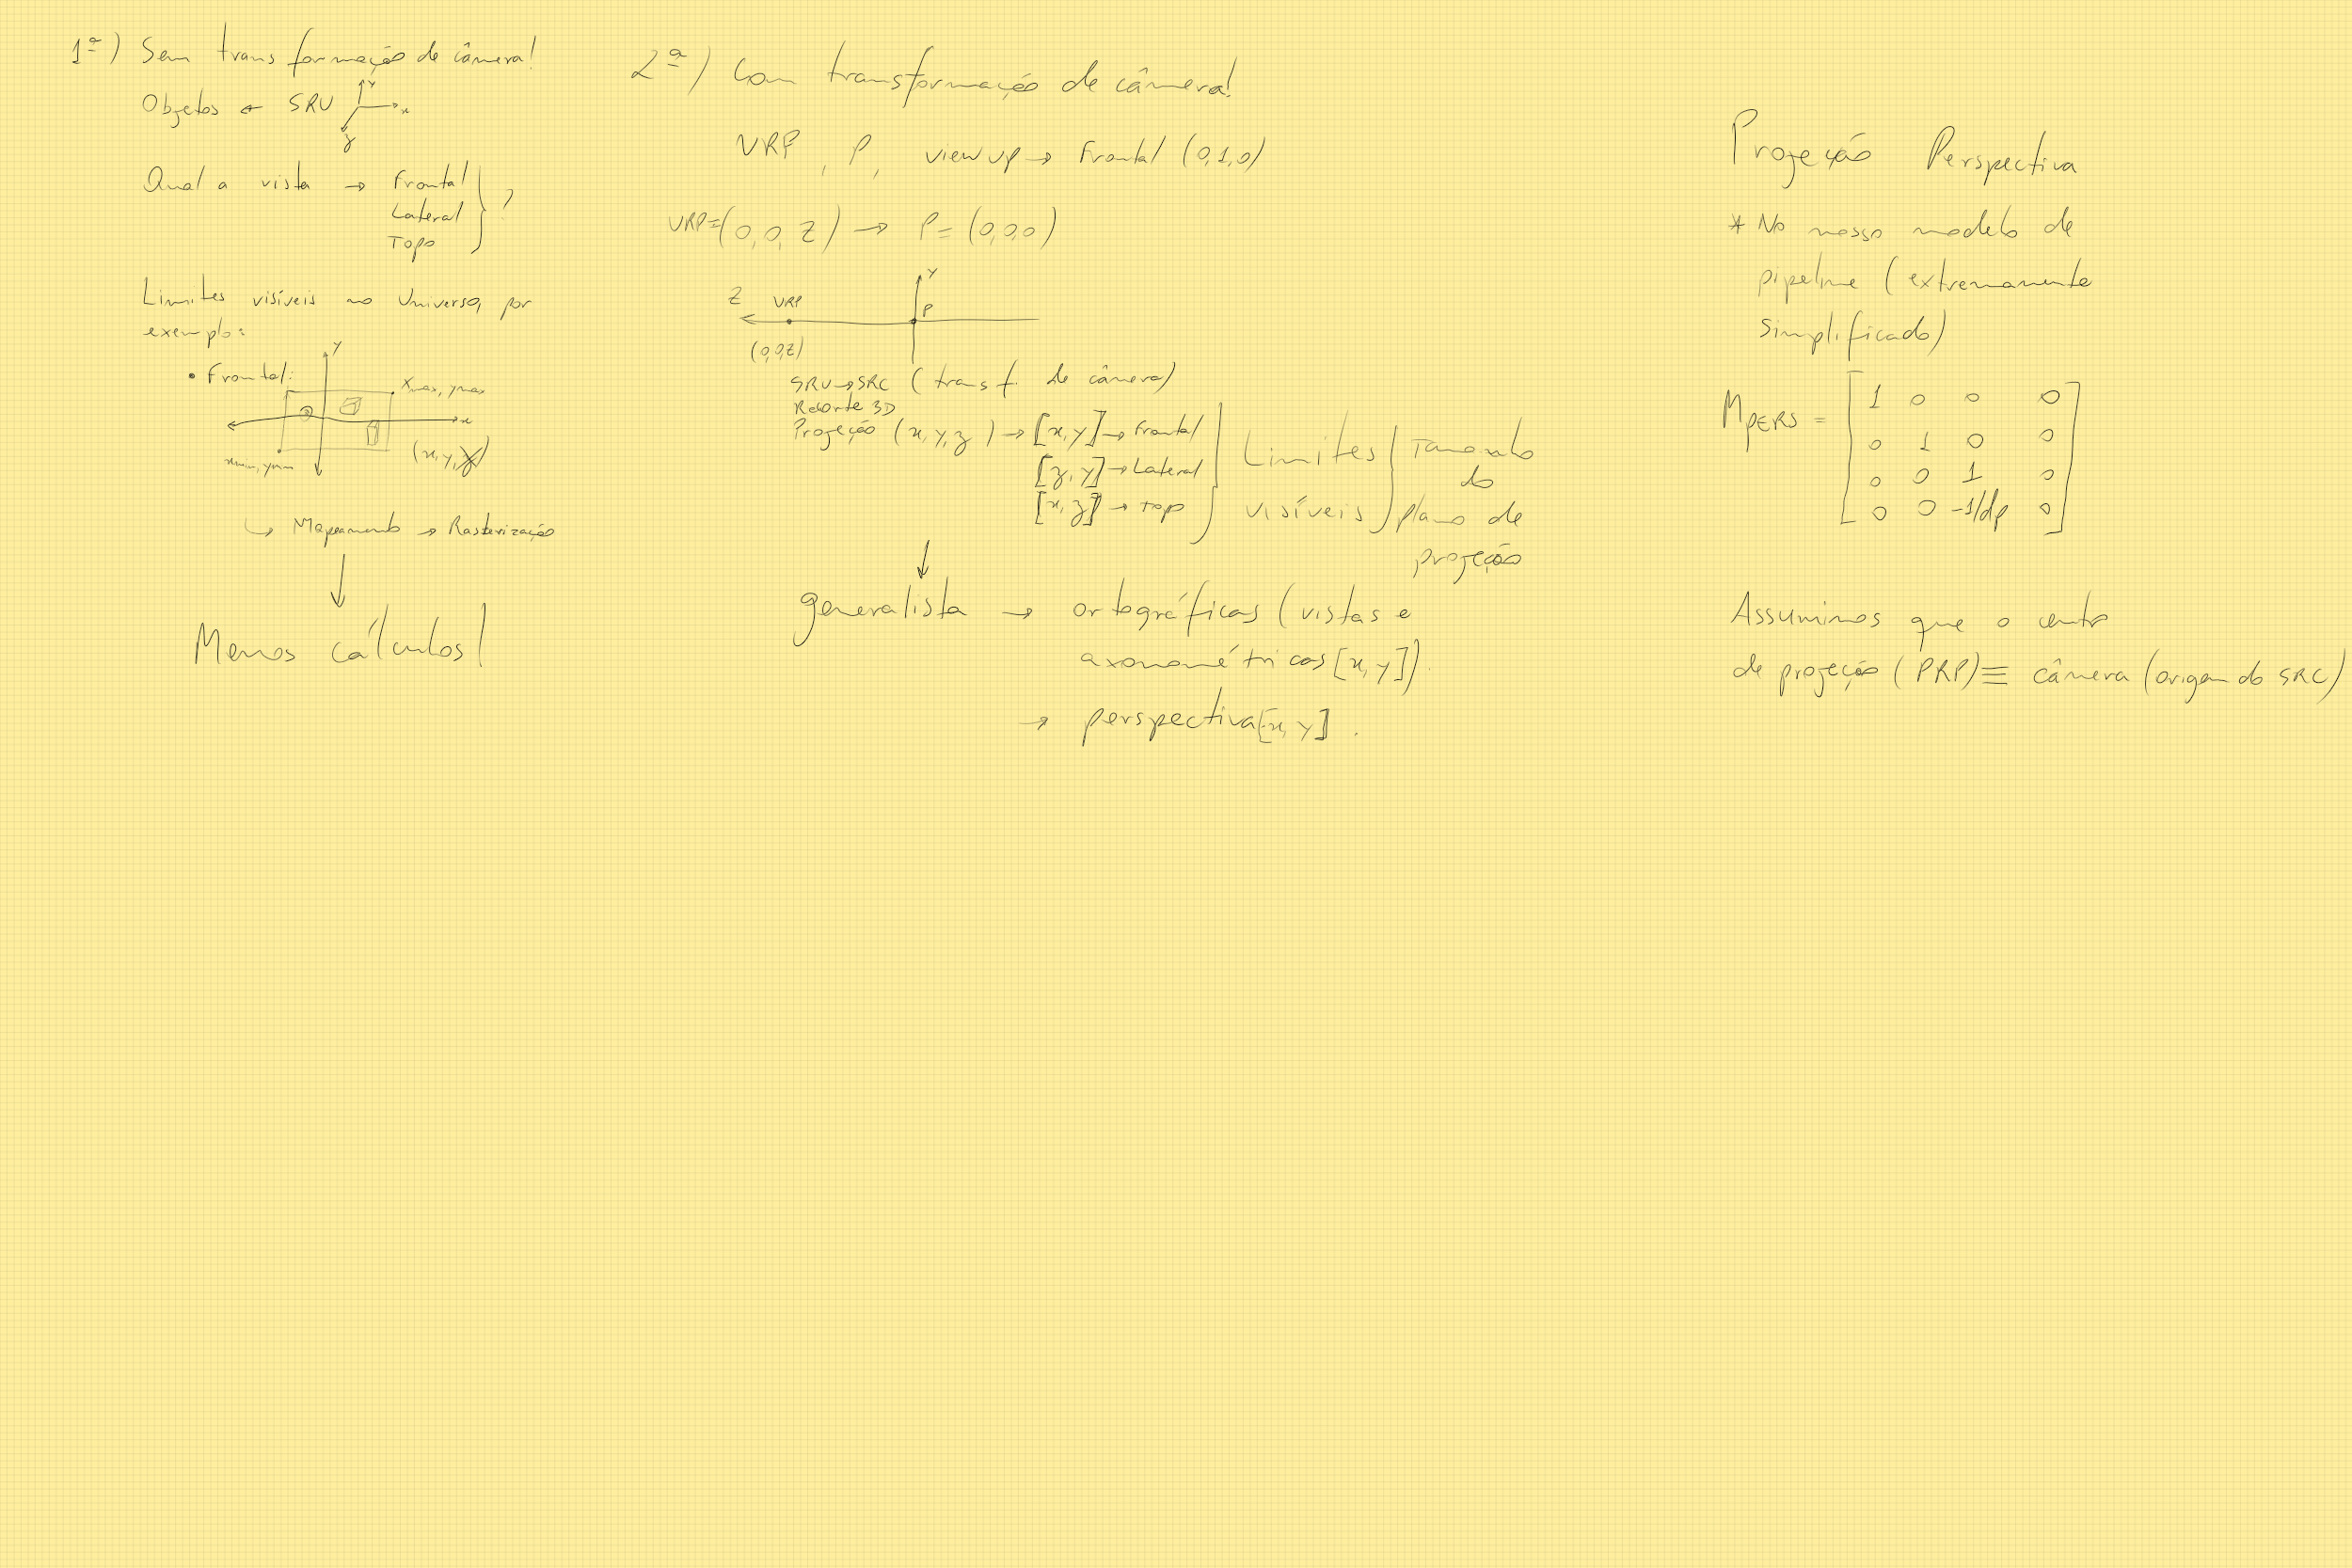 1ª) Sem transformação de câmera!
Objetos ← SRU
Y
x
z
Qual a vista → Frontal
Lateral
Topo
?
Limites visíveis no Universo, por
exemplo:
• Frontal:
Y
xmax, ymax
x
xmin, ymin
(x, y, z)
↳ Mapeamento → Rasterização
Menos cálculos!
2ª) Com transformação de câmera!
VRP, P, view up → Frontal (0,1,0)
VRP=(0,0,Z) → P=(0,0,0)
Z VRP
Y
P
(0,0,Z)
SRU→SRC (transf. de câmera)
Recorte 3D
Projeção (x, y, z) → [x, y] → Frontal
[z, y] → Lateral
[x, z] → Topo
Limites
visíveis
Tamanho
do
plano de
projeção
generalista → ortográficas (vistas e
axonométricas [x, y]).
→ perspectiva [x, y].
Projeção Perspectiva
* No nosso modelo de
pipeline (extremamente
simplificado)
MPERS =
1 0 0 0
0 1 0 0
0 0 1 0
0 0 -1/dp 0
Assumimos que o centro
de projeção (PRP) ≡ câmera (origem do SRC)